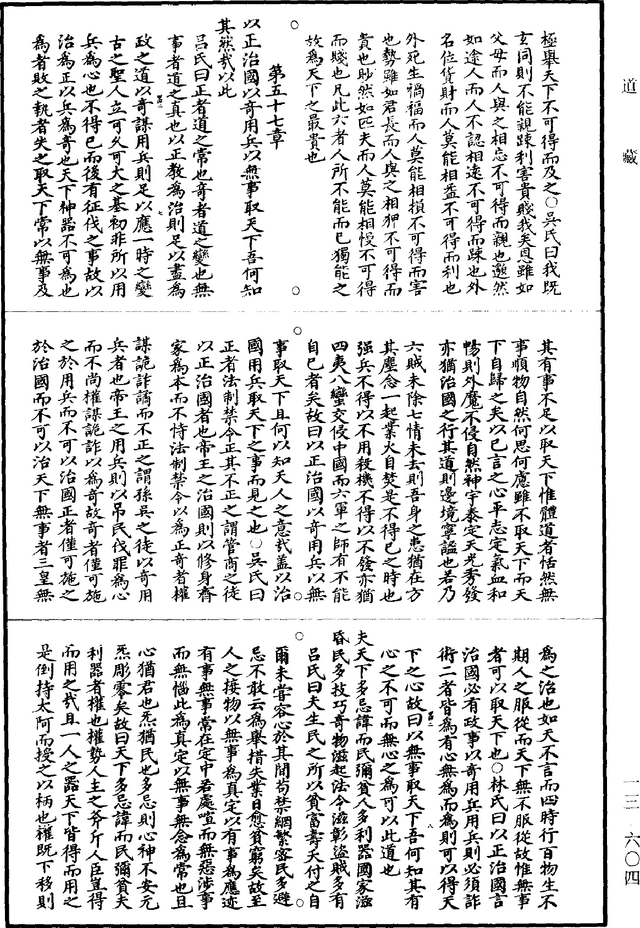 道藏
極舉天下不可得而及之○吳氏曰我既
玄同則不能親踈利害貴賤我矣恩雖如
父母而人與之相忘不可得而親也邈然
如途人而人不認相遠不可得而踈也外
名位貨財而人莫能相益不可得而利也
外死生禍福而人莫能相損不可得而害
也勢雖如君長而人與之相狎不可得而
貴也眇然如匹夫而人莫能相慢不可得
而賤也凡此六者人所不能而己獨能之
故為天下之最貴也
第五十七章
以正治國以奇用兵以無事取天下吾何知
其然哉以此
呂氏曰正者道之常也奇者道之變也無
事者道之真也以正教為治則足以盡為
政之道以奇謀用兵則足以應一時之變
古之聖人立可久可大之基初非所以用
兵為心也不得已而後有征伐之事故以
治為正以兵為奇也天下神器不可為也
為者敗之執者失之取天下常以無事及
其有事不足以取天下惟體道者恬然無
事順物自然何思何慮雖不取天下而天
下自歸之夫以已言之心平志定氣血和
暢則外魔不侵自然神宇泰定天光秀發
亦猶治國之行其道則邊境寧謐也若乃
六賊未除七情未去則吾身之患猶在方
其塵念一起業火自焚是不得已之時也
强兵不得以不用殺機不得以不發亦猶
四夷八蠻交侵中國而六軍之師有不能
自已者矣故曰以正治國以奇用兵以無
事取天下且何以知天人之意哉蓋以治
國用兵取天下之事而見之也○吳氏曰
正者法制禁令正其不正之謂管商之徒
以正治國者也帝王之治國則以修身齊
家為本而不恃法制禁令以為正奇者權
謀詭詐譎而不正之謂孫吳之徒以奇用
兵者也帝王之用兵則以吊民伐罪為心
而不尚權謀詭詐以為奇故奇者僅可施
之於用兵而不可以治國正者僅可施之
於治國而不可以治天下無事者三皇無
為之治也如天不言而四時行百物生不
期人之服從而天下無不服從故惟無事
者可以取天下也○林氏曰以正治國言
治國必有政事以奇用兵用兵則必須詐
術二者皆為有心無為而為則可以得天
下之心故曰以無事取天下吾何知其有
心之不可而無心之為可以此道也
夫天下多忌諱而民彌貧人多利器國家滋
昏民多技巧奇物滋起法令滋彰盜賊多有
呂氏曰夫生民之所以貧富壽夭付之自
爾未嘗容心於其間苟禁網繁密民多避
忌不敢云為舉措失業日愈貧窮矣故至
人之接物以無事為真定以有事為應迹
有事無事常在定中若處喧而無惡涉事
而無惱此為真定以無事無念為常也且
心猶君也炁猶民也多忌則心神不安元
炁彫零矣故曰天下多忌諱而民彌貧夫
利器者權也權勢人主之斧斤人臣豈得
而用之哉且一人之器天下皆得而用之
是倒持太阿而授之以柄也權既下移則
一三—六〇四